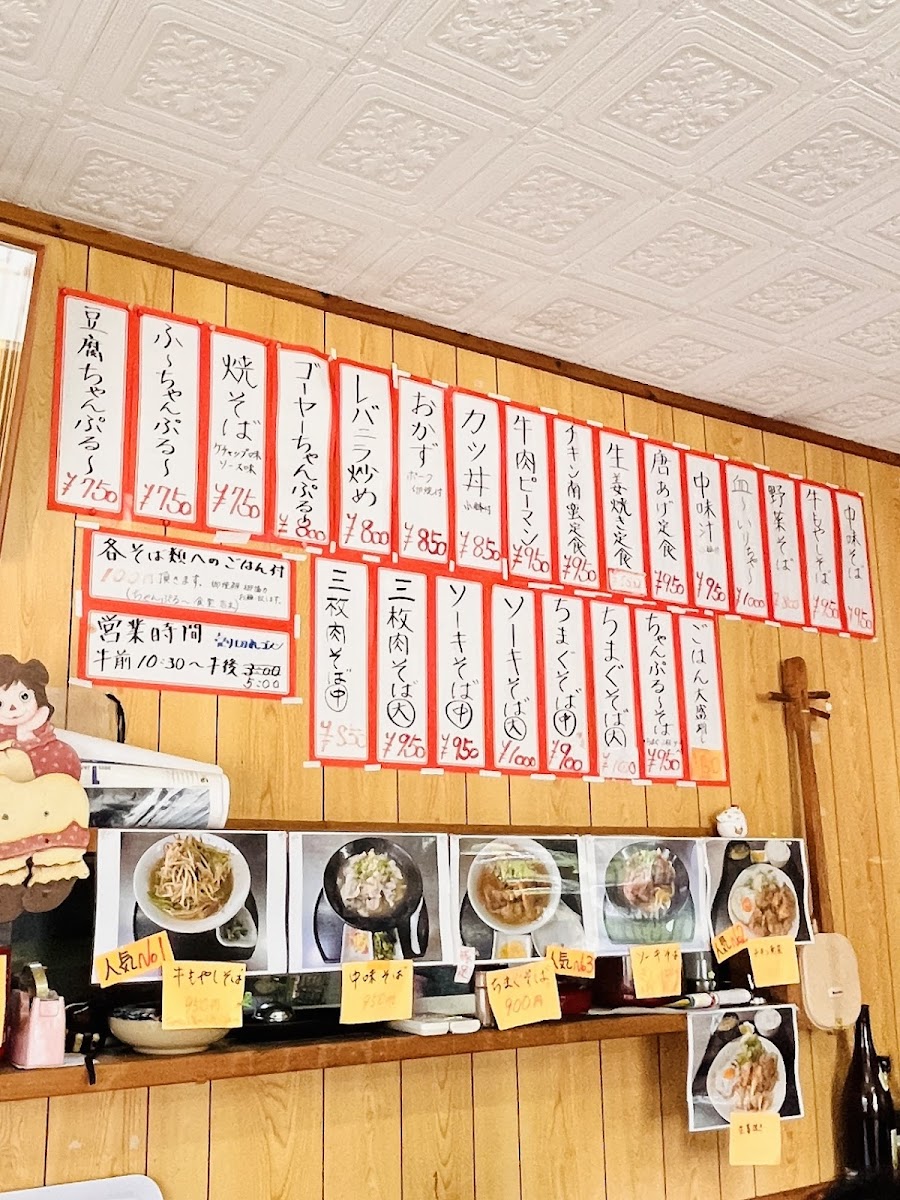 豆腐ちゃんぷる〜
¥750
ふ〜ちゃんぷる〜
¥750
焼そば
ケチャップ味
ソース味
¥750
ゴーヤーちゃんぷる〜
¥800
レバニラ炒め
¥800
おかず
ポーク
¥850
カツ丼
¥850
牛肉ピーマン
¥950
チキン南蛮定食
¥950
生姜焼き定食
唐あげ定食
¥950
中味汁
¥950
血いりちゃ
¥1000
野菜そば
牛もやしそば
¥950
中味そば
¥950
各そば類へのごはん付
100円頂きます。
営業時間
午前10:30〜午後3:00
5:00
三枚肉そば㊥
¥850
三枚肉そば(大)
¥950
ソーキそば㊥
¥950
ソーキそば(大)
¥1000
ちまぐそば㊥
¥900
ちまぐそば(大)
¥1000
ちゃんぷる〜そば
¥950
ごはん大盛
150
人気No1
牛もやしそば
950円
中味そば
950円
ちまぐそば
900円
人気No3
ソーキそば
人気No2